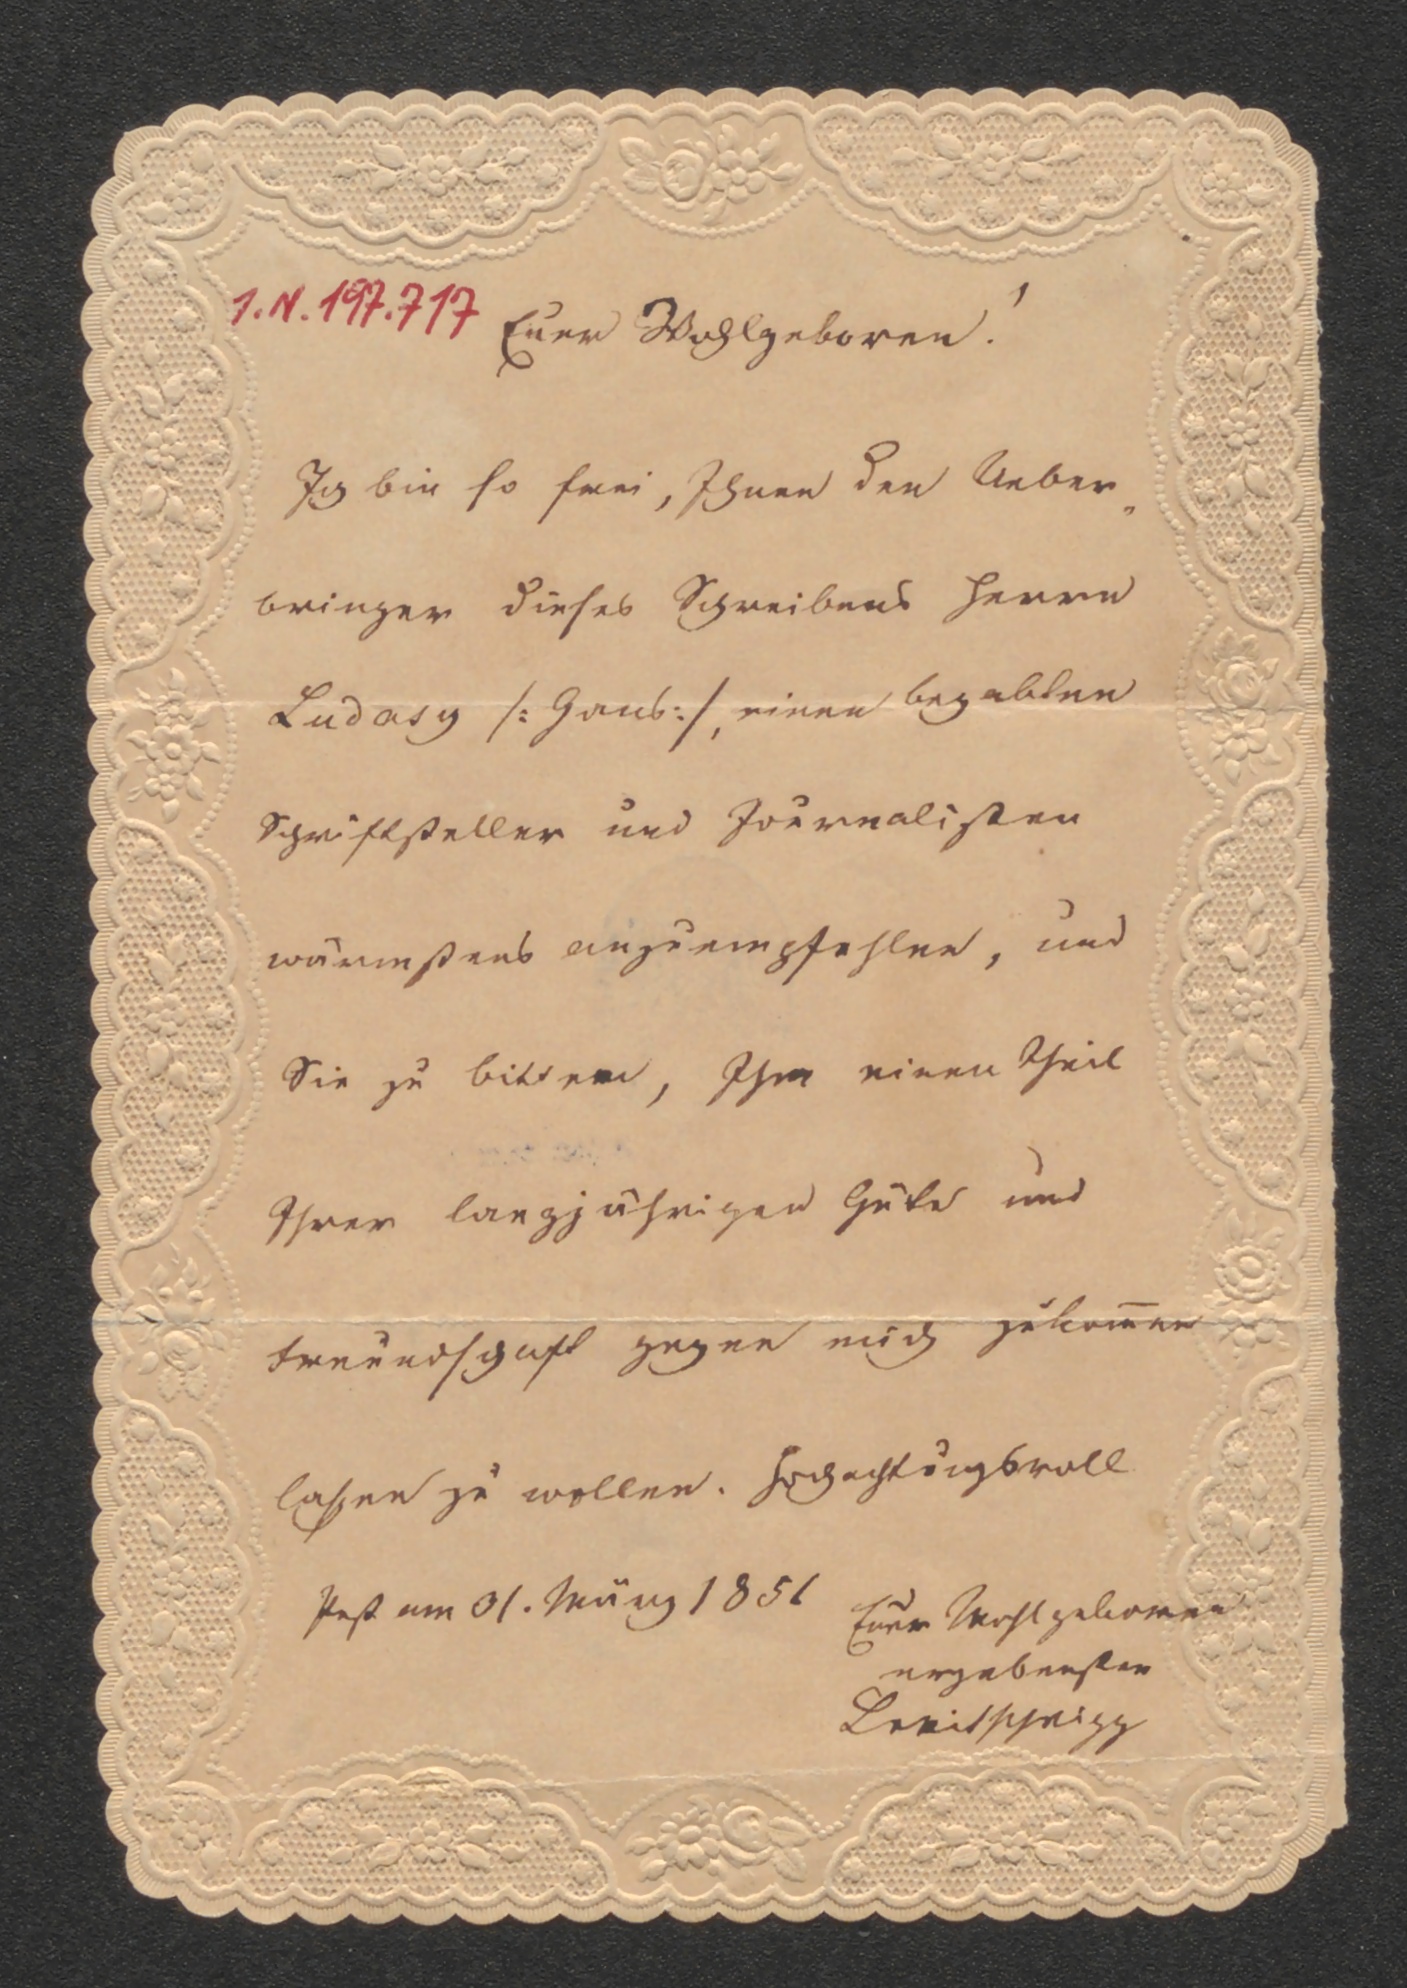 I.N. 197.717
Euer Wohlgeboren!
Ich bin so frei, Ihnen den Ueber„
bringer dieses Schreibens Herrn
Ludasy /: Gans :/, einen begabten
Schriftsteller und Journalisten
wärmstens anzuempfehlen, und
Sie zu bitten, Ihm einen Theil
Ihrer langjährigen Güte und
Freundschaft gegen mich zukom̅en
laßen zu wollen. Hochachtungsvoll
Pest am 31. März 1851
Euer Wohlgeboren
ergebensten
Levitschnigg